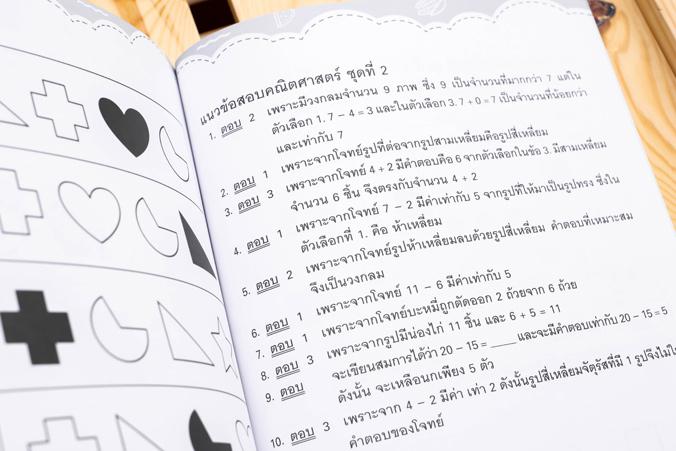 แนวข้อสอบคณิตศาสตร์ ชุดที่ 2
1. ตอบ 2 เพราะมีวงกลมจำนวน 9 ภาพ ซึ่ง 9 เป็นจำนวนที่มากกว่า 7 แต่ใน
ตัวเลือก 1. 7 − 4 = 3 และในตัวเลือก 3. 7 + 0 = 7 เป็นจำนวนที่น้อยกว่า
และเท่ากับ 7
2. ตอบ 1 เพราะจากโจทย์รูปที่ต่อจากรูปสามเหลี่ยมคือรูปสี่เหลี่ยม
3. ตอบ 3 เพราะจากโจทย์ 4 + 2 มีคำตอบคือ 6 จากตัวเลือกในข้อ 3. มีสามเหลี่ยม
จำนวน 6 ชิ้น จึงตรงกับจำนวน 4 + 2
4. ตอบ 1 เพราะจากโจทย์ 7 − 2 มีค่าเท่ากับ 5 จากรูปที่ให้มาเป็นรูปทรง ซึ่งใน
ตัวเลือกที่ 1. คือ ห้าเหลี่ยม
5. ตอบ 2 เพราะจากโจทย์รูปห้าเหลี่ยมลบด้วยรูปสี่เหลี่ยม คำตอบที่เหมาะสม
จึงเป็นวงกลม
6. ตอบ 1 เพราะจากโจทย์ 11 − 6 มีค่าเท่ากับ 5
7. ตอบ 1 เพราะจากโจทย์บะหมี่ถูกตัดออก 2 ถ้วยจาก 6 ถ้วย
8. ตอบ 3 เพราะจากรูปมีน่องไก่ 11 ชิ้น และ 6 + 5 = 11
9. ตอบ จะเขียนสมการได้ว่า 20 − 15 = ____ และจะมีคำตอบเท่ากับ 20 − 15 = 5
ดังนั้น จะเหลือนกเพียง 5 ตัว
10. ตอบ 3 เพราะจาก 4 − 2 มีค่า เท่า 2 ดังนั้นรูปสี่เหลี่ยมจัตุรัสที่มี 1 รูปจึงไม่
คำตอบของโจทย์